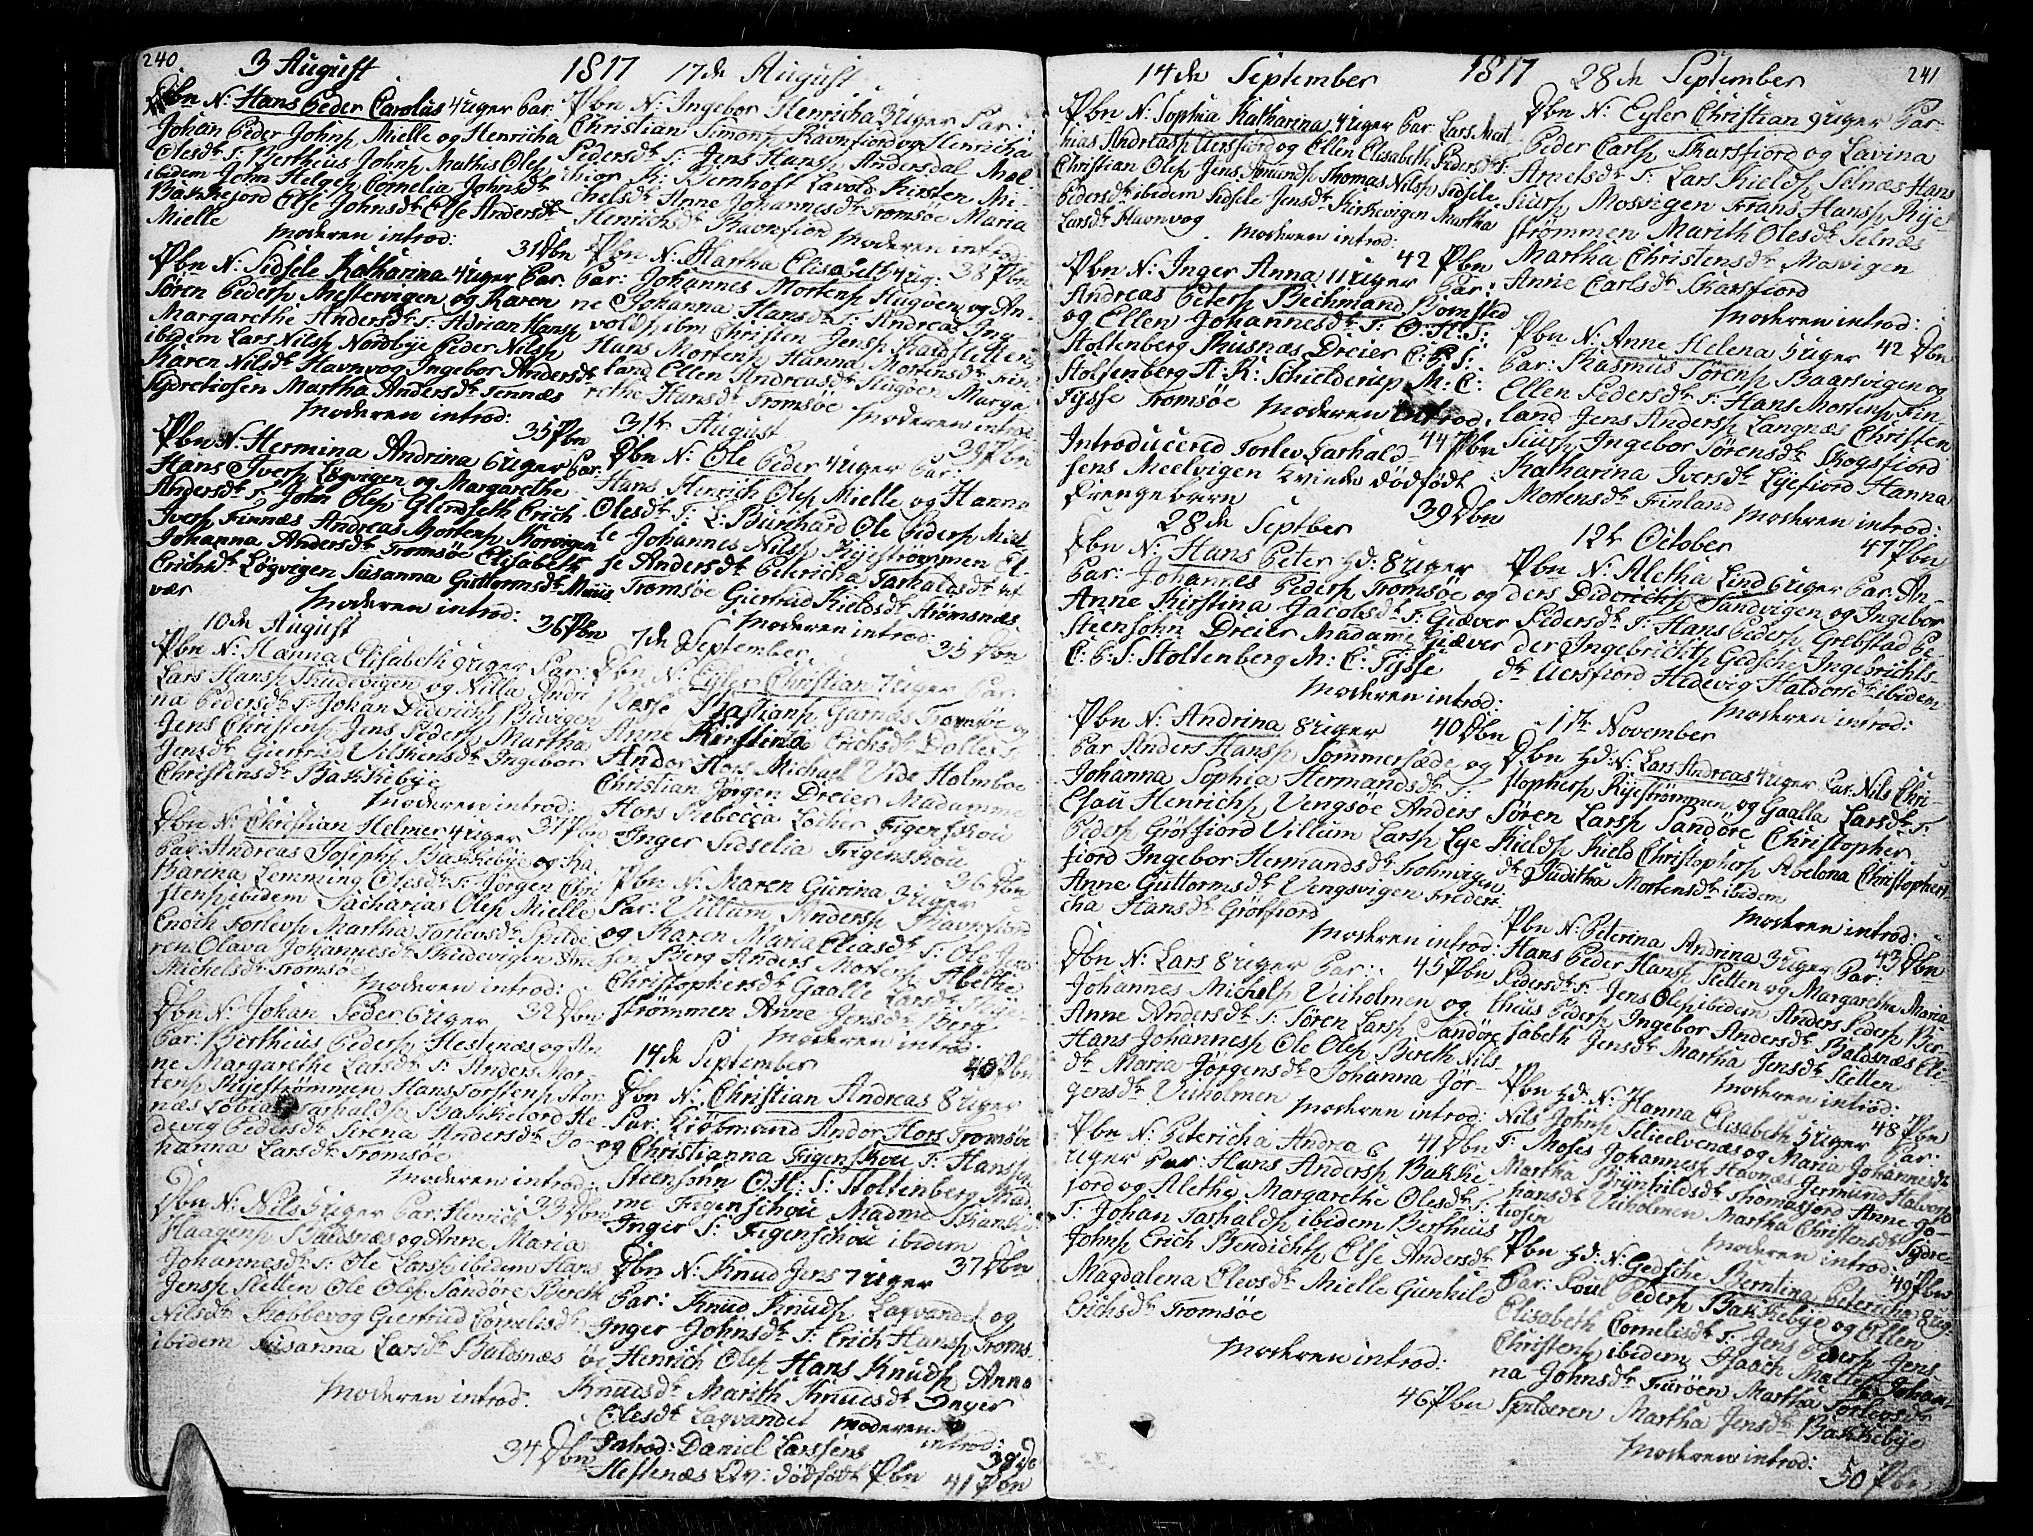 240
3 August
Dbn N: Hans Peder Carolus 4 uger Par:
Johan Peder Johnsøn Mielle og Henricha
Olesdtr T: Bertheus Johnsøn Mathis Olsøn
ibidem John Helgesøn Cornelia Johnsdtr
Bakkejord Else Johnsdtr Else Andersdtr
Mielle
Moderen introd:
31 Dbn
Pbn N: Sidsele Katharina 4 uger Par:
Søren Pedersøn Mestervigen og Karen
Margarethe Andersdtr T: Adrian Hansøn
ibidem Lars Nilsøn Nordbye Peder Nilsøn
Karen Nilsdtr Havnvog Ingebor Andersdtr
Martha Andersdtr Tennæs
Moderen introd:
35 Pbn
Pbn N: Hermina Andrina 6 uger Par:
Hans Iversøn Løgvigen og Margarethe
Andersdtr T: John Olsøn Erich
Iversøn Finnæs Andreas Mortensøn
Johanna Andersdtr Tromsøe Elisabeth
Erichsdtr Løgvigen Susanna Guttormsdtr Muus
vær
Moderen introd:
36 Pbn
10de August
Pbn N: Hanna Elisabeth 9 uger Par:
Lars Hansøn Skudevigen og Nilla Andri
na Pedersdtr T: Johan Diderichsøn
Jens Christensøn Jens Pedersøn Martha
Jensdtr Giertrud Ingebor
Christensdtr Bakkebye
Moderen introd:
37 Pbn
Dbn N: Christian Helmer 4 uger
Par: Andreas Josephsøn Bakkebye og Ka
tharina Lemming Olesdtr T: Jørgen Chri
stensøn ibidem Zacharias Olsøn Mielle
Enoch Torlevsøn Martha Torlevsdtr Spilde
ren Olava Johannesdtr Skudevigen Ane
Michelsdtr Tromsøe
Moderen introd:
32 Dbn
Dbn N: Johan Peder 6 uger
Par: Berthius Pedersøn Hestenæs og An
ne Margarethe Larsdtr T: Anders Mor-
tensøn Ryestrømmen Hans Torstensøn Stor
næs Tobias Tarhaldsøn Bakkejord He
devig Pedersdtr Sirena Andersdtr Jo-
hanna Larsdtr Tromsøe
Moderen introd:
33 Dbn
Dbn N: Nils 5 uger Par: Henrich
Haagensøn Baldsnæs og Anne Maria
Johannesdtr T: Ole Larsøn ibidem Hans
Jensøn Sletten Ole Olsøn Sandøre Bereth
Nilsdtr Kobbevog Giertrud Cornelisdtr
ibidem Susanna Larsdtr Baldsnæs
Moderen introd:
34 Dbn
1817 17de August
Pbn N: Ingebor Henricha 3 uger Par:
Christian Simonsøn Ravnfiord og Henricha
Pedersdtr T: Jens Hansøn Andersdal Mel-
chior K: Bernhoft Lavold Kirsten Mi-
chelsdtr Anne Johannesdtr Tromsøe Maria
Henrichsdtr Ravnfiord Moderen introd:
38 Pbn
Pbn N: Martha Elisabeth 4 ug:
Par: Johannes Mortensøn Hugøen og An-
ne Johanna Hansdtr T: Andreas Ing-
voldsøn ibm Christen Jensøn Sletten
Hans Mortensøn Hanna Mortensdtr Fin
land Ellen Andreasdtr Hugøen Marge-
rethe Hansdtr Tromsøe Moderen introd
39 Pbn
31te August
Dbn N: Ole Peder 4 uger Par:
Hans Henrich Olsøn Mielle og Hanna
Olesdtr T: L: Burchard Ole Pedersøn Miel-
le Johannes Nilsøn Ryestrømmen El
se Andersdtr Petericha Tarhaldsdtr
Tromsøe Giertrud Kieldsdtr Strømsnæs
Moderen introd:
35 Dbn
7de September
Dbn N: Eyler Christian 7 uger Par.
Garnæs Tromsøe og
Anne Kirstina Erichsdtr Dolles:
Andor Hors Michael Vide Holmboe
Christian Jørgen Dreier Madamme
Hors Rebecca Figenskou
Inger Sidselia Figenskou
36 Dbn
Pbn N: Maren Gurina 3 uger
Par: Villum Andersøn Ravnfiord
og Karen Maria Eliasdtr T: Ole Jen
sen Berg Anders Mortensøn Abethe
Christophersdtr Gaalle Larsdtr Rye-
strømmen Anne Jensdtr Berg
Moderen introd:
40 Pbn
14de September
Dbn N: Christian Andreas 8 uger
Par: Kiøbmand Andor Hors Tromsøe
og Christianna Figenskou T: Hans
Steensohn O: H: S: Stoltenberg Mad
me Figenschou Madme
Inger S: Figenschou ibidem
37 Dbn
Dbn N: Knud Jens 7 uger
Par: Knud Knudsøn Lagvandet og
Inger Johnsdtr T: Erich Hansøn Troms-
øe Henrich Olsøn Hans Knudsøn Anna
Knudsdtr Marith Knudsdtr Inger
Olesdtr Lagvandet Moderen
introd:
38 D
Introd: Daniel Larssens
Hestenæs Qv: dødfødt Pbn
41 Pbn
14de September
Pbn N: Sophia Katharina 4 uger Par: Lars Mat
hias Andreasøn Uersfiord og Ellen Elisabeth Pedersdtr T:
Christian Olsøn Jens Thomas Nilsøn Sidsele
Pedersdtr ibidem Sidsele Jensdtr Kirkevigen Martha
Larsdtr Havnvog
Moderen introd:
42 Pbn
Pbn N: Inger Anna 11 uger Par:
Andreas Petersøn Bechmand Biørnsted
og Ellen Johannesdtr T: O: H: S:
Stoltenberg Rusnæs Dreier C: P: S:
Stolsenberg A: R: Schielderup M: C:
Fysse Tromsøe Moderen introd:
44 Pbn
Introducered Torlev Tarhald-
sens Meelvigen Qvinde dødfødt
Drengebarn
39 Dbn
28de Septber
Dbn N: Hans Peter hd: 8 uger
Par: Johannes Pedersøn Tromsøe og
Anne Kirstina Jacobsdtr T: Giæver
Steensohn Dreier Madame Giæver
C: P: S: Stoltenberg M: C: Fysse
Moderen introd:
40 Dbn
Pbn N: Andrina 8 uger
Par Anders Hansøn Sommersæde og
Johanna Sophia Hermandsdtr T:
Esau Henrichsøn Vengsøe Anders
Pedersøn Grøtfiord Villum Larsøn Lye
fiord Ingebor Hermandsdtr Tromvigen
Anne Guttormsdtr Vengsvigen Frederi
cha Hansdtr Grøtfiord
Moderen introd:
45 Pbn
Dbn N: Lars 8 uger Par:
Johannes Michelsøn Veiholmen og
Anne Andersdtr T: Søren Larsøn Sandøre
Hans Johannesøn Ole Olsøn Bereth Nils-
dtr Maria Jørgensdtr Johanna Jør-
gensdtr Veiholmen Moderen introd:
41 Dbn
Pbn N: Petericha Andrea 6
uger Par: Hans Andersøn Bakke-
jord og Alethe Margarethe Olesdtr
T: Johan Tarhaldsøn ibidem Berthius
Johnsøn Erich Bendichsøn Else Andersdtr
Magdalena Elevsdtr Mielle Gunhild
Erichsdtr Tromsøe
Moderen introd:
46 Pbn
1817 28de September 241
Dbn N: Eyler Christian 9 uger Par:
Peder Carlsøn Skarsfiord og Lavina
Arnelsdtr T: Lars Kieldsøn Selnæs Hans
Siursøn Mosvigen Frans Hansøn Rye
strømmen Marith Olesdtr Selnæs
Martha Christensdtr Mosvigen
Anne Carlsdtr Skarsfiord
Moderen introd:
42 Dbn
Pbn N: Anne Helena 5 uger
Par: Rasmus Sørensøn Baarsvigen og
Ellen Pedersdtr T: Hans Mortensøn Fin-
land Jens Andersøn Langnæs Christen
Siursøn Ingebor Sørensdtr Skogsfiord
Katharina Iversdtr Lyefiord Hanna
Mortensdtr Finland Moderen introd:
47 Pbn
12te October
Pbn N: Aletha Lind 6 uger Par: An-
ders Diderichsøn Sandvigen og Ingebor
Pedersdtr T: Hans Pedersøn Grebstad Pe-
der Ingebrichtsøn Gedsche Ingebrichts-
dtr Uersfiord Hedevig Haldorsdtr ibidem
Moderen introd:
1te November
Dbn hd: N: Lars Andreas 4 uger Par: Nils Chri-
stophersøn Ryestrømmen og Gaalla Larsdtr T:
Søren Larsøn Sandøre Christopher
Kieldsøn Kield Christophersøn Abelona Christophers
dtr Juditha Mortensdtr ibidem
Moderen introd:
43 Dbn
Pbn N: Peterina Andrina 3 uger Par:
Hans Peder Hansøn Sletten og Margarethe Maria
Pedersdtr T: Jens Olsøn ibidem Anders Pedersøn Ber
theus Pedersøn Ingebor Andersdtr Baldsnæs Eli-
sabeth Jensdtr Martha Jensdtr Sletten
Moderen introd:
48 Pbn
Pbn hd: N: Hanna Elisabeth 5 uger Par:
Nils Johnsøn Schielvenæs og Maria Johannesdtr
T: Moses Johannesøn Havnæs Germund Halvorsøn
Martha Brynhildsdtr Thomasjord Anne Jo-
hansdtr Veiholmen Martha Christensdtr Sydre-
kiosen
Moderen introd:
49 Pbn
Pbn hd: N: Gedsche Berntina Petericha 9 ug:
Par: Poul Pedersøn Bakkebye og Ellen
Elisabeth Cornelisdtr T: Jens Pedersøn Jens
Christensøn ibidem Isaach Johan-
na Johnsdtr Furøen Martha Torlevsdtr
Spilderen Martha Jensdtr Bakkebye
Moderen introd:
50 Pbn